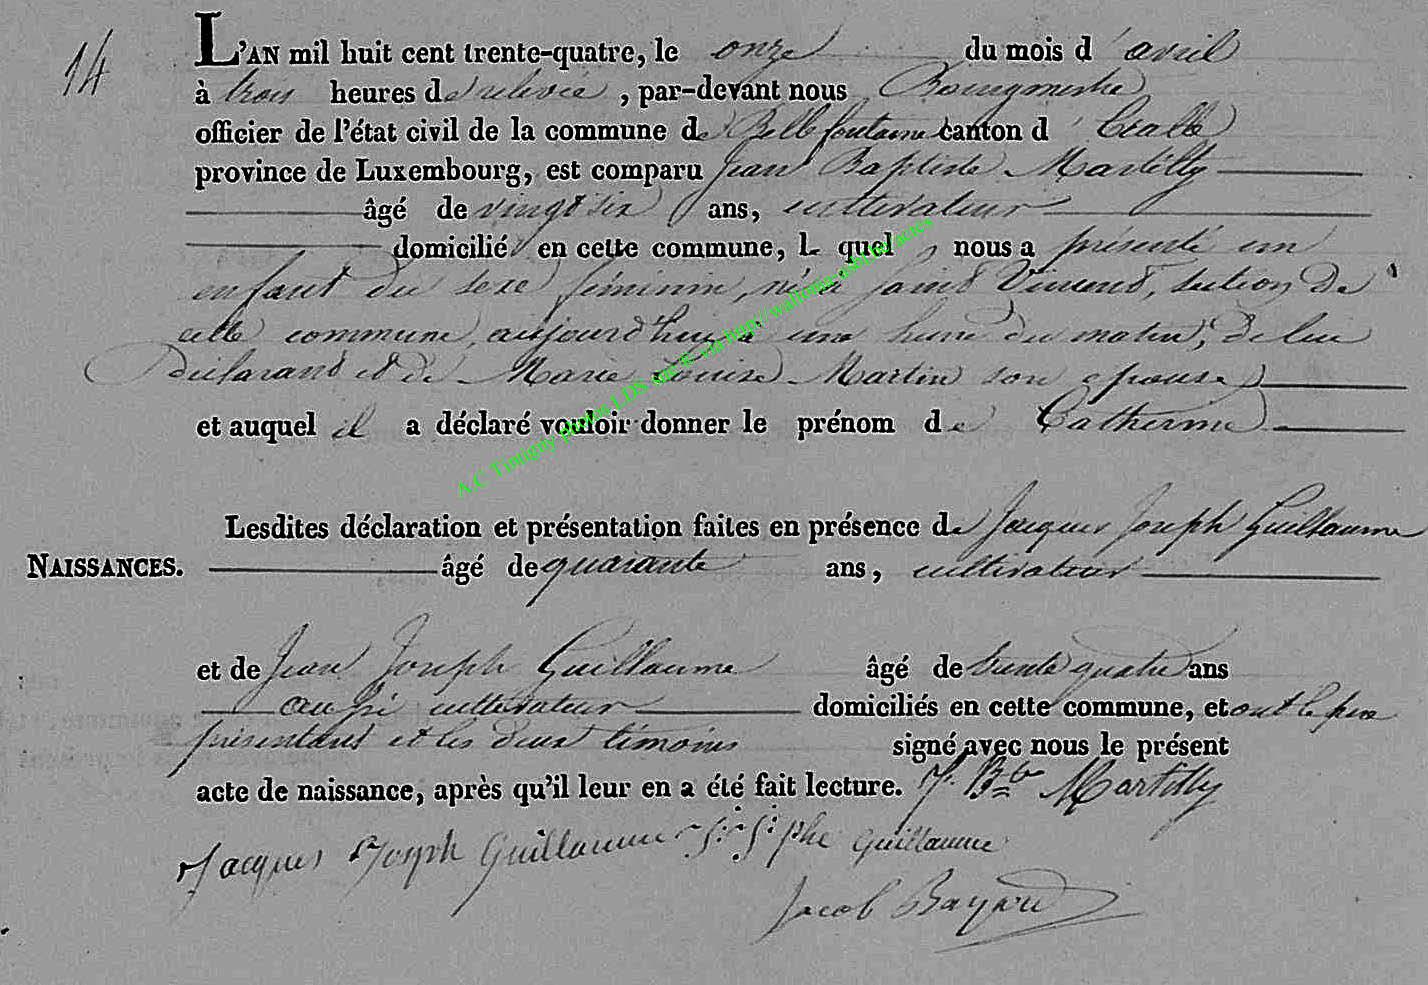 14
L'AN mil huit cent trente-quatre, le onze du mois d'avril
à trois heures de relevée, par-devant nous Bourgmestre
officier de l'état civil de la commune de Bellefontaine canton d'Etalle
province de Luxembourg, est comparu Jean Baptiste Martilly
âgé de vingt six ans, cultivateur
domicilié en cette commune, lequel nous a présenté un
enfant du sexe féminin, né à Saint Vincent, section de
cette commune, aujourd'hui à une heure du matin, de lui
déclarant et de Marie Louise Martin son épouse
et auquel il a déclaré vouloir donner le prénom de Catherine
Lesdites déclaration et présentation faites en présence de Jacques Joseph Guillaume
NAISSANCES.
âgé de quarante ans, cultivateur
et de Jean Joseph Guillaume âgé de trente quatre ans
aussi cultivateur domiciliés en cette commune, et ont le père
présentant et les deux témoins signé avec nous le présent
acte de naissance, après qu'il leur en a été fait lecture. J. Bte Martilly
Jacques Joseph Guillaume J: J:phe Guillaume
Jacob Bayard
A.C Tintigny photos LDS sur ® via http://wallonia-asbl.be/actes